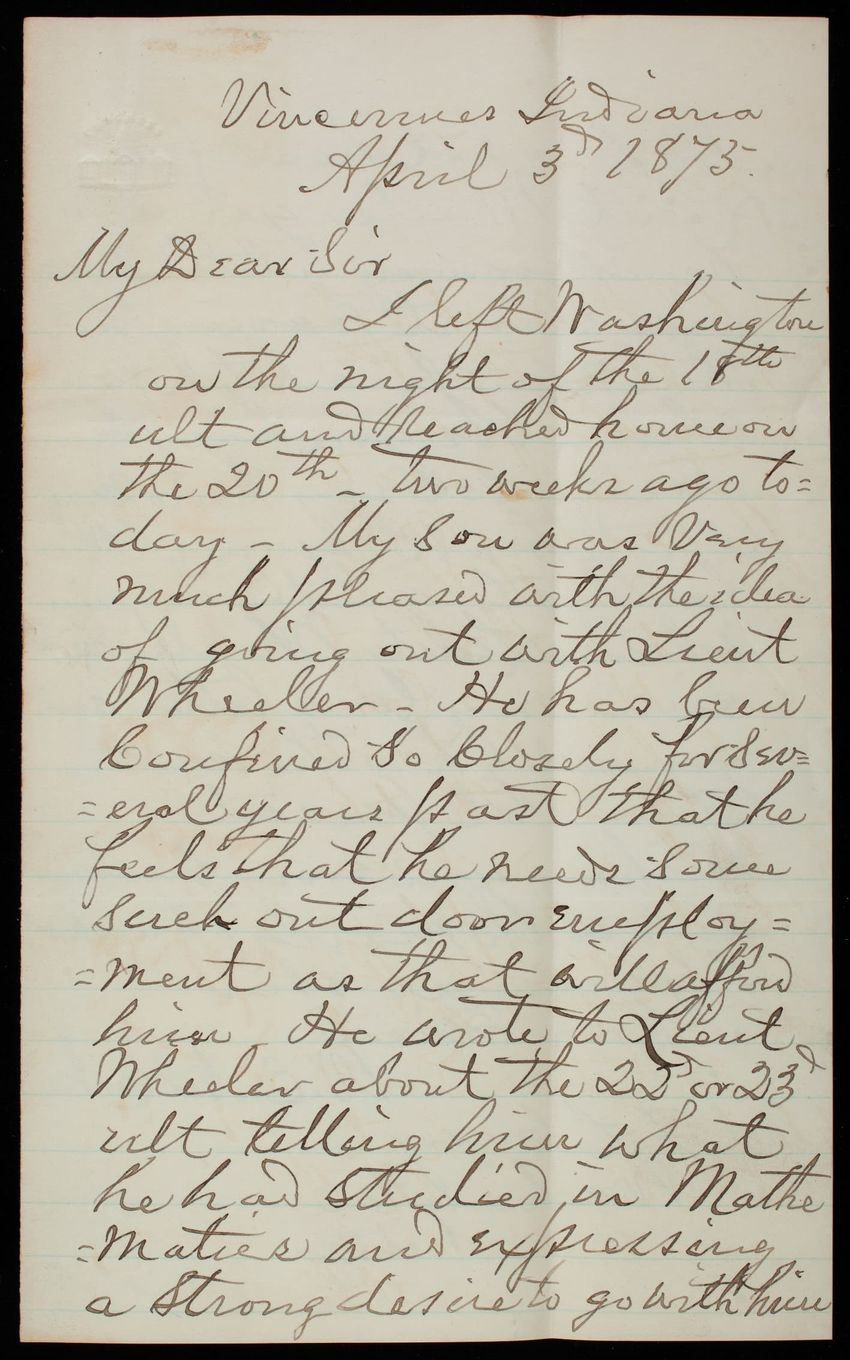 Vincennes Indiana
April 3d 1875.
My Dear Sir
I left Washington
on the night of the 18th
ult and reached home on
the 20th - two weeks ago to=
day - My Son was Very
much pleased with the idea
of going out with Lieut
Wheeler - He has been
Confined So Closely for Sev=
=eral years past that he
feels that he needs Some
Such out door employ=
=ment as that will afford
him - He wrote to Lieut
Wheeler about the 22d or 23d
ult telling him what
he had Studied in Mathe
=matics and expressing
a Strong desire to go with him